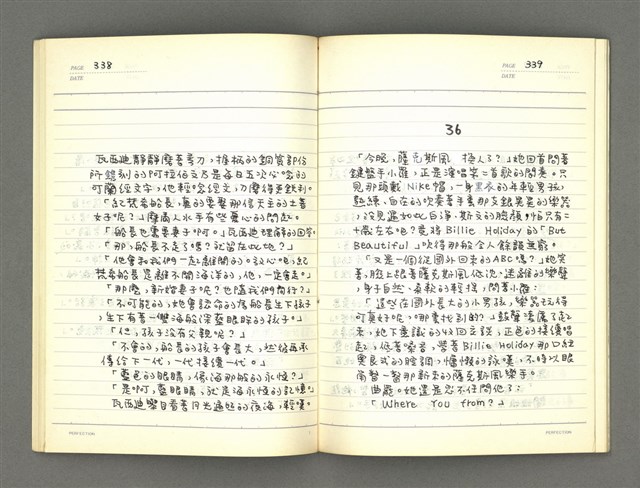 PAGE 338
DATE
瓦西迪靜靜磨著彎刀,握柄的銅質部份
所鐫刻的阿拉伯文乃是每日五次必唸的
可蘭經文字,他輕唸經文,刀磨得更銳利。
「紅梵希船長,真的要娶那信天主的土著
女子呢?」摩爾人水手有些憂心的問起。
「船長也需要妻子啊。」瓦西迪理解的回答。
「那,船長不走了嗎?就留在此地?」
「他會和我們一起離開的。放心吧,紅
梵希船長是離不開海洋的,他,一定會走。」
「那麼,新婚妻子呢?也隨我們而行?」
「不可能的,她會認命的為船長生下孩子
,生下有著一雙海般深藍眼眸的孩子。」
「但,孩子沒有父親呢?」
「不會的,船長的孩子會長大,然後再承
傳給下一代,一代接續一代。」
「藍色的眼睛,像海那般的永恆?」
「是啊,藍眼睛,就是海永恆的記憶。」
瓦西迪舉目看著月光遍照的夜海,殺嘆。
PERFECTION
PAGE 339
DATE
36
「今晚,薩克斯風 換人了?」她回首問著
鍵盤手小羅,正是演唱第二首歌的間奏。只
見那頭戴Nike帽,一身黑衣的年輕男孩,
熟練,自在的吹奏著手裏那支銀亮的樂器
,沒見過如此白淨、斯文的臉顏,怕只有二
十歲左右吧?竟將Billie Holiday的「But
Beautiful」吹得那般令人餘韻無窮。
「又是一個從國外回來的ABC嗎?」她笑
著,臉上跟著薩克斯風低沉、迷離的樂聲
,身子自然、柔軟的輕搖,問著小羅:
「這些在國外長大的小男孩,樂器玩得
可真好呢。哪裏找到的?」鼓聲淒厲了起
來,她下意識的以回主歌,正色的接續唱
起,低著嗓音,學著Billie Holiday那口純
美良式的腔調,慵懶的詠嘆,不時以眼
角瞥一瞥那新來的薩克斯風樂手。
曲罷。她還是忍不住問他了:
「Where You from?」
PERFECTION